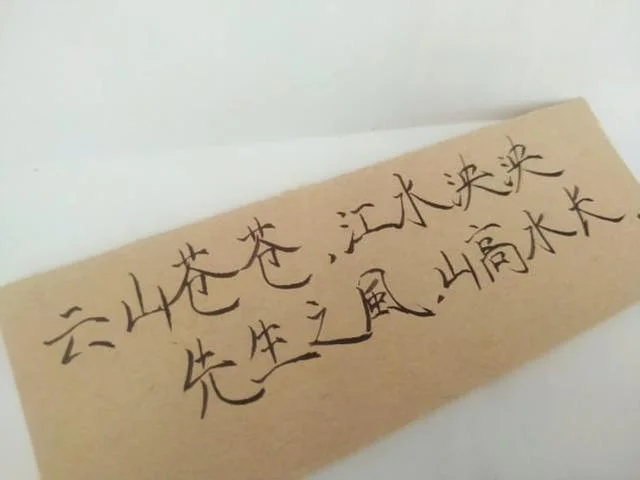 云山苍苍,江水泱泱
先生之風,山高水长.